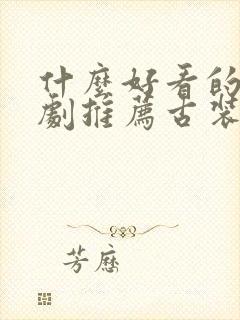 什麼好看的
劇推薦古裝
芳歷